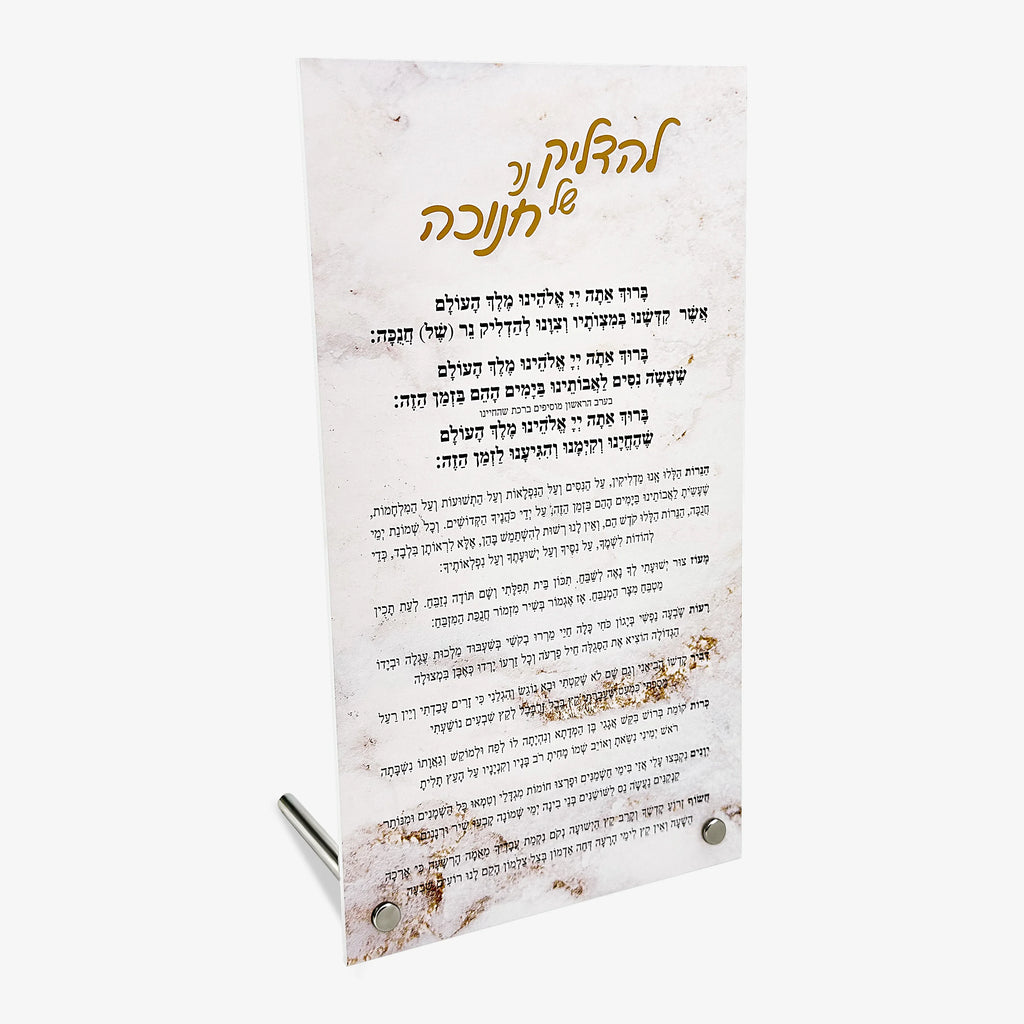 להדליק נר
של חנוכה
בָּרוּךְ אַתָּה יְיָ אֱלֹהֵינוּ מֶלֶךְ הָעוֹלָם
אֲשֶׁר קִדְּשָׁנוּ בְּמִצְוֹתָיו וְצִוָּנוּ לְהַדְלִיק נֵר (שֶׁל) חֲנֻכָּה:
בָּרוּךְ אַתָּה יְיָ אֱלֹהֵינוּ מֶלֶךְ הָעוֹלָם
שֶׁעָשָׂה נִסִּים לַאֲבוֹתֵינוּ בַּיָּמִים הָהֵם בַּזְּמַן הַזֶּה:
בערב הראשון מוסיפים ברכת שהחיינו
בָּרוּךְ אַתָּה יְיָ אֱלֹהֵינוּ מֶלֶךְ הָעוֹלָם
שֶׁהֶחֱיָנוּ וְקִיְּמָנוּ וְהִגִּיעָנוּ לַזְּמַן הַזֶּה:
הַנֵּרוֹת הַלָּלוּ אָנוּ מַדְלִיקִין, עַל הַנִּסִּים וְעַל הַנִּפְלָאוֹת וְעַל הַתְּשׁוּעוֹת וְעַל הַמִּלְחָמוֹת,
שֶׁעָשִׂיתָ לַאֲבוֹתֵינוּ בַּיָּמִים הָהֵם בַּזְּמַן הַזֶּה, עַל יְדֵי כֹּהֲנֶיךָ הַקְּדוֹשִׁים. וְכָל שְׁמוֹנַת יְמֵי
חֲנֻכָּה, הַנֵּרוֹת הַלָּלוּ קֹדֶשׁ הֵם, וְאֵין לָנוּ רְשׁוּת לְהִשְׁתַּמֵּשׁ בָּהֶן, אֶלָּא לִרְאוֹתָן בִּלְבַד, כְּדֵי
לְהוֹדוֹת לְשִׁמְךָ, עַל נִסֶּיךָ וְעַל יְשׁוּעָתֶךָ וְעַל נִפְלְאוֹתֶיךָ:
מָעוֹז צוּר יְשׁוּעָתִי לְךָ נָאֶה לְשַׁבֵּחַ. תִּכּוֹן בֵּית תְּפִלָּתִי וְשָׁם תּוֹדָה נְזַבֵּחַ. לְעֵת תָּכִין
מַטְבֵּחַ מִצָּר הַמְנַבֵּחַ. אָז אֶגְמוֹר בְּשִׁיר מִזְמוֹר חֲנֻכַּת הַמִּזְבֵּחַ:
רָעוֹת שָׂבְעָה נַפְשִׁי בְּיָגוֹן כֹּחִי כָּלָה חַיַּי מֵרְרוּ בְּקֹשִׁי בְּשִׁעְבּוּד מַלְכוּת עֶגְלָה וּבְיָדוֹ
הַגְּדוֹלָה הוֹצִיא אֶת הַסְּגֻלָּה חֵיל פַּרְעֹה וְכָל זַרְעוֹ יָרְדוּ כְּאֶבֶן בִּמְצוּלָה
דְּבִיר קָדְשׁוֹ הֱבִיאַנִי וְגַם שָׁם לֹא שָׁקַטְתִּי וּבָא נוֹגֵשׂ וְהִגְלַנִי כִּי זָרִים עָבַדְתִּי וְיֵין רַעַל
מָסַכְתִּי כִּמְעַט שֶׁעָבַרְתִּי קֵץ בָּבֶל זְרֻבָּבֶל לְקֵץ שִׁבְעִים נוֹשַׁעְתִּי
כְּרוֹת קוֹמַת בְּרוֹשׁ בִּקֵּשׁ אֲגָגִי בֶּן הַמְּדָתָא וְנִהְיָתָה לוֹ לְפַח וּלְמוֹקֵשׁ וְגַאֲוָתוֹ נִשְׁבָּתָה
רֹאשׁ יְמִינִי נִשֵּׂאתָ וְאוֹיֵב שְׁמוֹ מָחִיתָ רֹב בָּנָיו וְקִנְיָנָיו עַל הָעֵץ תָּלִיתָ
יְוָנִים נִקְבְּצוּ עָלַי אֲזַי בִּימֵי חַשְׁמַנִּים וּפָרְצוּ חוֹמוֹת מִגְדָּלַי וְטִמְּאוּ כָּל הַשְּׁמָנִים וּמִנּוֹתַר
קַנְקַנִּים נַעֲשָׂה נֵס לַשּׁוֹשַׁנִּים בְּנֵי בִינָה יְמֵי שְׁמוֹנָה קָבְעוּ שִׁיר וּרְנָנִים
חֲשׂוֹף זְרוֹעַ קָדְשֶׁךָ וְקָרֵב קֵץ הַיְשׁוּעָה נְקֹם נִקְמַת עֲבָדֶיךָ מֵאֻמָּה הָרְשָׁעָה כִּי אָרְכָה
הַשָּׁעָה וְאֵין קֵץ לִימֵי הָרָעָה דְּחֵה אַדְמוֹן בְּצֵל צַלְמוֹן הָקֵם לָנוּ רוֹעִים שִׁבְעָה